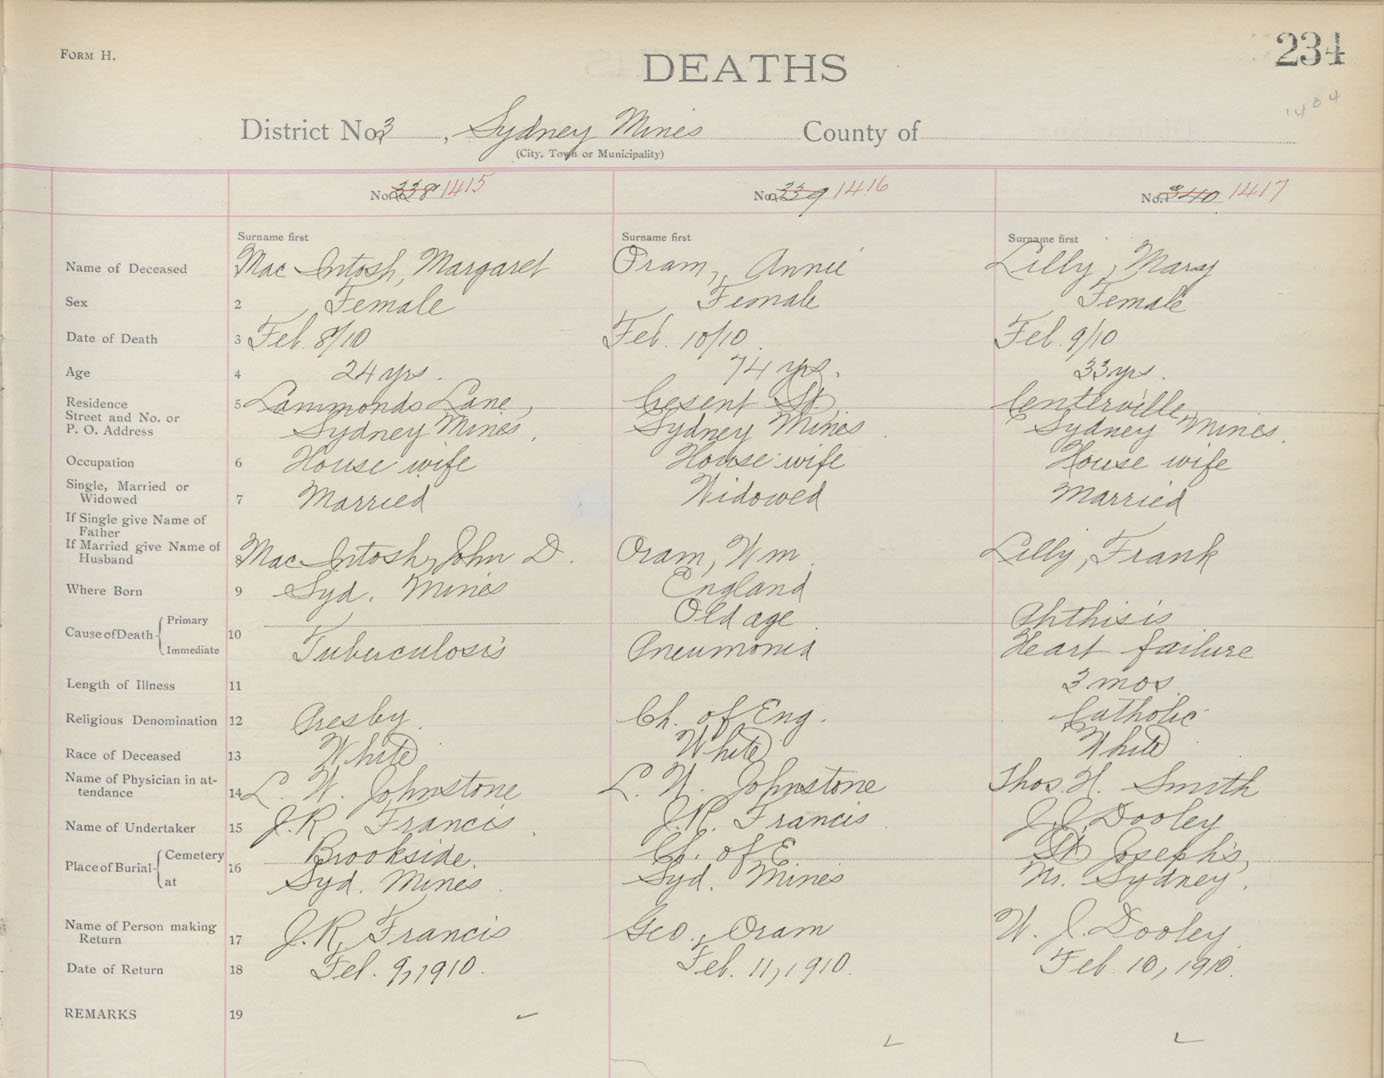 Form H.
234
DEATHS
1404
District No. 3, Sydney Mines County of
(City, Town or Municipality)
No. 338 1415 No. 339 1416 No. 340 1417
Surname first Surname first Surname first
Name of Deceased Mac Intosh, Margaret Oram, Annie Lilly, Mary
Sex 2 Female Female Female
Date of Death 3 Feb. 8/10 Feb. 10/10 Feb. 9/10
Age 4 24 yrs. 74 yrs. 33 yrs.
Residence 5 Lammonds Lane, Cresent St., Centerville,
Street and No. or
P. O. Address Sydney Mines. Sydney Mines. Sydney Mines.
Occupation 6 House wife House wife House wife
Single, Married or
Widowed 7 Married Widowed Married
If Single give Name of
Father
If Married give Name of
Husband Mac Intosh, John D. Oram, Wm. Lilly, Frank
Where Born 9 Syd. Mines England
Cause of Death Primary Old age Phthisis
10
Immediate Tuberculosis Pneumonia Heart failure
Length of Illness 11 3 mos.
Religious Denomination 12 Presby. Ch. of Eng. Catholic
Race of Deceased 13 White White White
Name of Physician in at-
tendance 14 L. W. Johnstone L. W. Johnstone Thos. H. Smith
Name of Undertaker 15 J. R. Francis. J. R. Francis J. J. Dooley
Place of Burial Cemetery Brookside. Ch. of E. St Joseph's,
16
at Syd. Mines. Syd. Mines No. Sydney.
Name of Person making
Return 17 J. R. Francis Geo. Oram W. J. Dooley
Date of Return 18 Feb. 9, 1910. Feb. 11, 1910. Feb. 10, 1910.
REMARKS 19